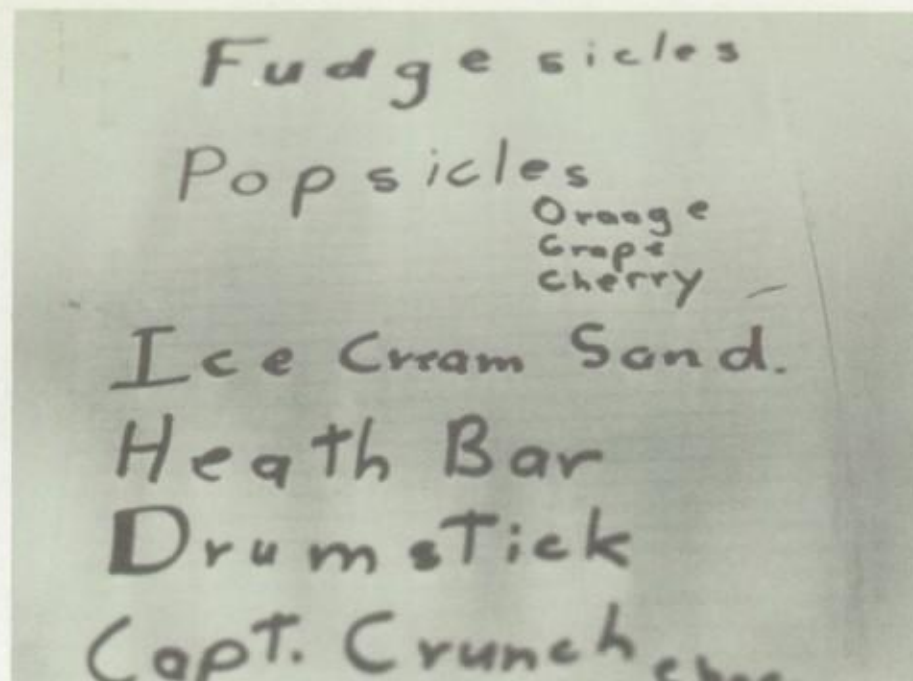 Fudge sicles
Popsicles
Orange
Grape
Cherry
Ice Cream Sand.
Heath Bar
DrumsTick
Capt. Crunch